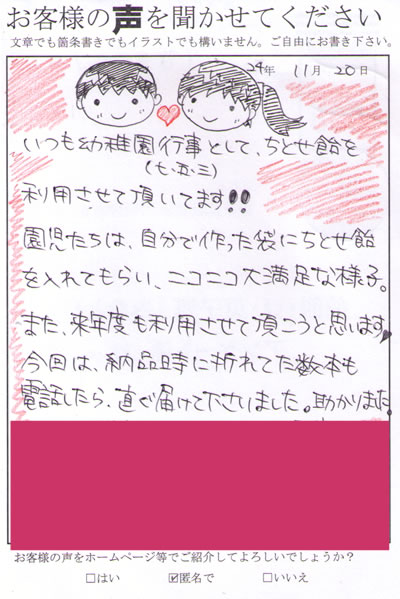 お客様の声を聞かせてください
文章でも箇条書きでもイラストでも構いません。ご自由にお書き下さい。
24年 11月 20日
いつも幼稚園行事として、ちとせ飴を
(七・五・三)
利用させて頂いてます!!
園児たちは、自分で作った袋にちとせ飴
を入れてもらい、ニコニコ大満足な様子。
また、来年度も利用させて頂こうと思います
今回は、納品時に折れてた数本も
電話したら、直ぐ届けて下さいました。助かりました。
お客様の声をホームページ等でご紹介してよろしいでしょうか?
□はい ☑匿名で □いいえ